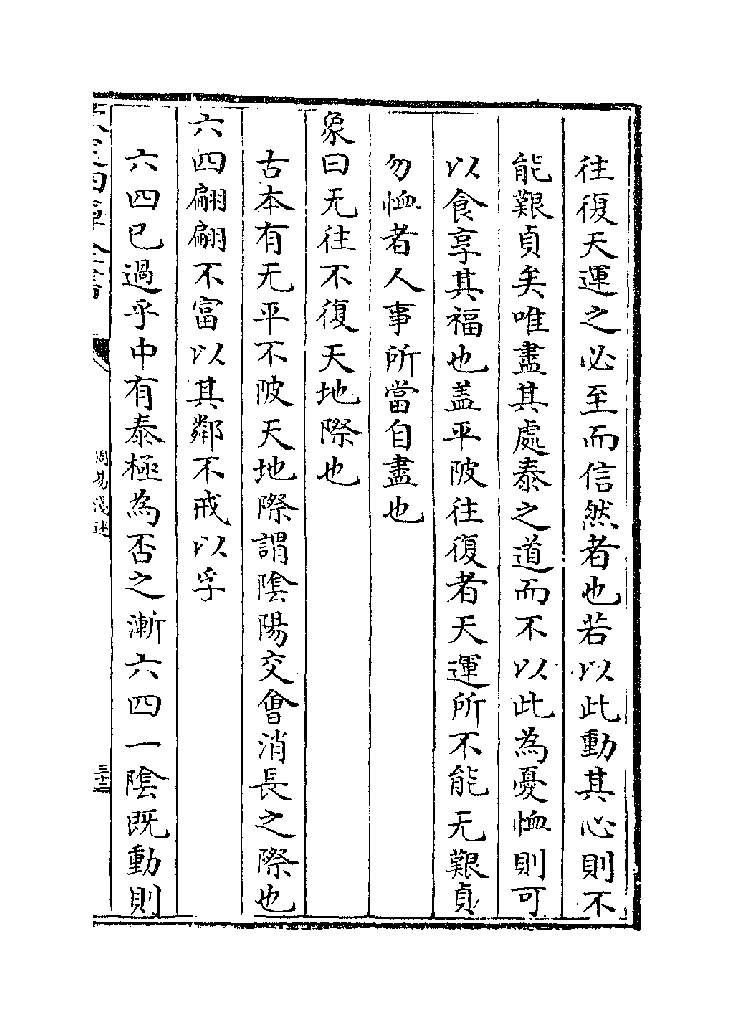 往復天運之必至而信然者也若以此動其心則不
能艱貞矣唯盡其處泰之道而不以此為憂恤則可
以食享其福也蓋平陂往復者天運所不能无艱貞
勿恤者人事所當自盡也
象曰无往不復天地際也
古本有无平不陂天地際謂隂陽交會消長之際也
六四翩翩不富以其鄰不戒以孚
六四已過乎中有泰極為否之漸六四一隂既動則
周易淺述
三十三